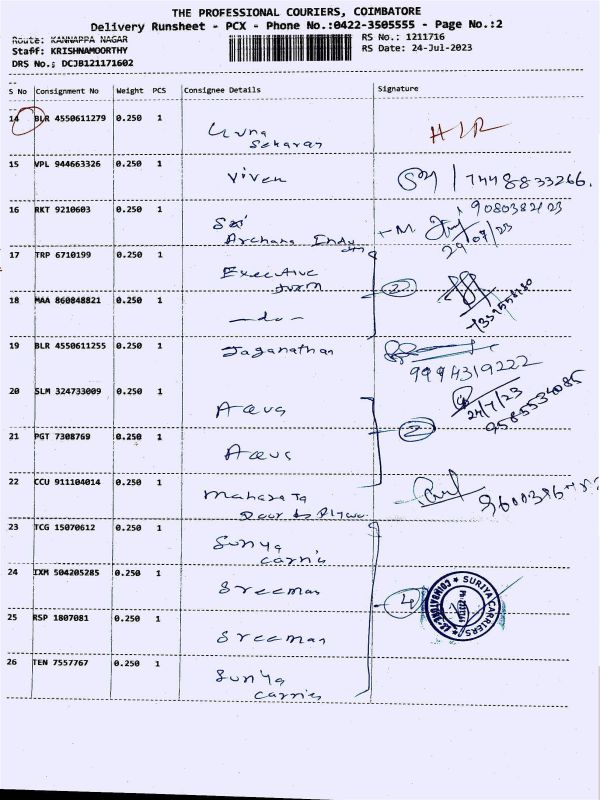 THE PROFESSIONAL COURIERS, COIMBATORE
Delivery Runsheet - PCX - Phone No.:0422-3505555 - Page No.:2
Route: KANNAPPA NAGAR
RS No.: 1211716
Staff: KRISHNAMOORTHY
RS Date: 24-Jul-2023
DRS No.: DCJB121171602
S No Consignment No Weight PCS Consignee Details Signature
14 BLR 4550611279 0.250 1
15 VPL 944663326 0.250 1 Vivek 7448833266.
16 RKT 9210603 0.250 1 Sri
Archana
17 TRP 6710199 0.250 1 Executive
18 MAA 860848821 0.250 1 -do- 2
19 BLR 4550611255 0.250 1 Jaganathan
9994319222
20 SLM 324733009 0.250 1 24/7/23
9585534085
21 PGT 7308769 0.250 1 2
22 CCU 911104014 0.250 1
23 TCG 15070612 0.250 1 Suriya
Carries
24 IXM 504205285 0.250 1 Sreeman 4
SURIYA CARRIERS
25 RSP 1807081 0.250 1 Sreeman
26 TEN 7557767 0.250 1 Suriya
Carries